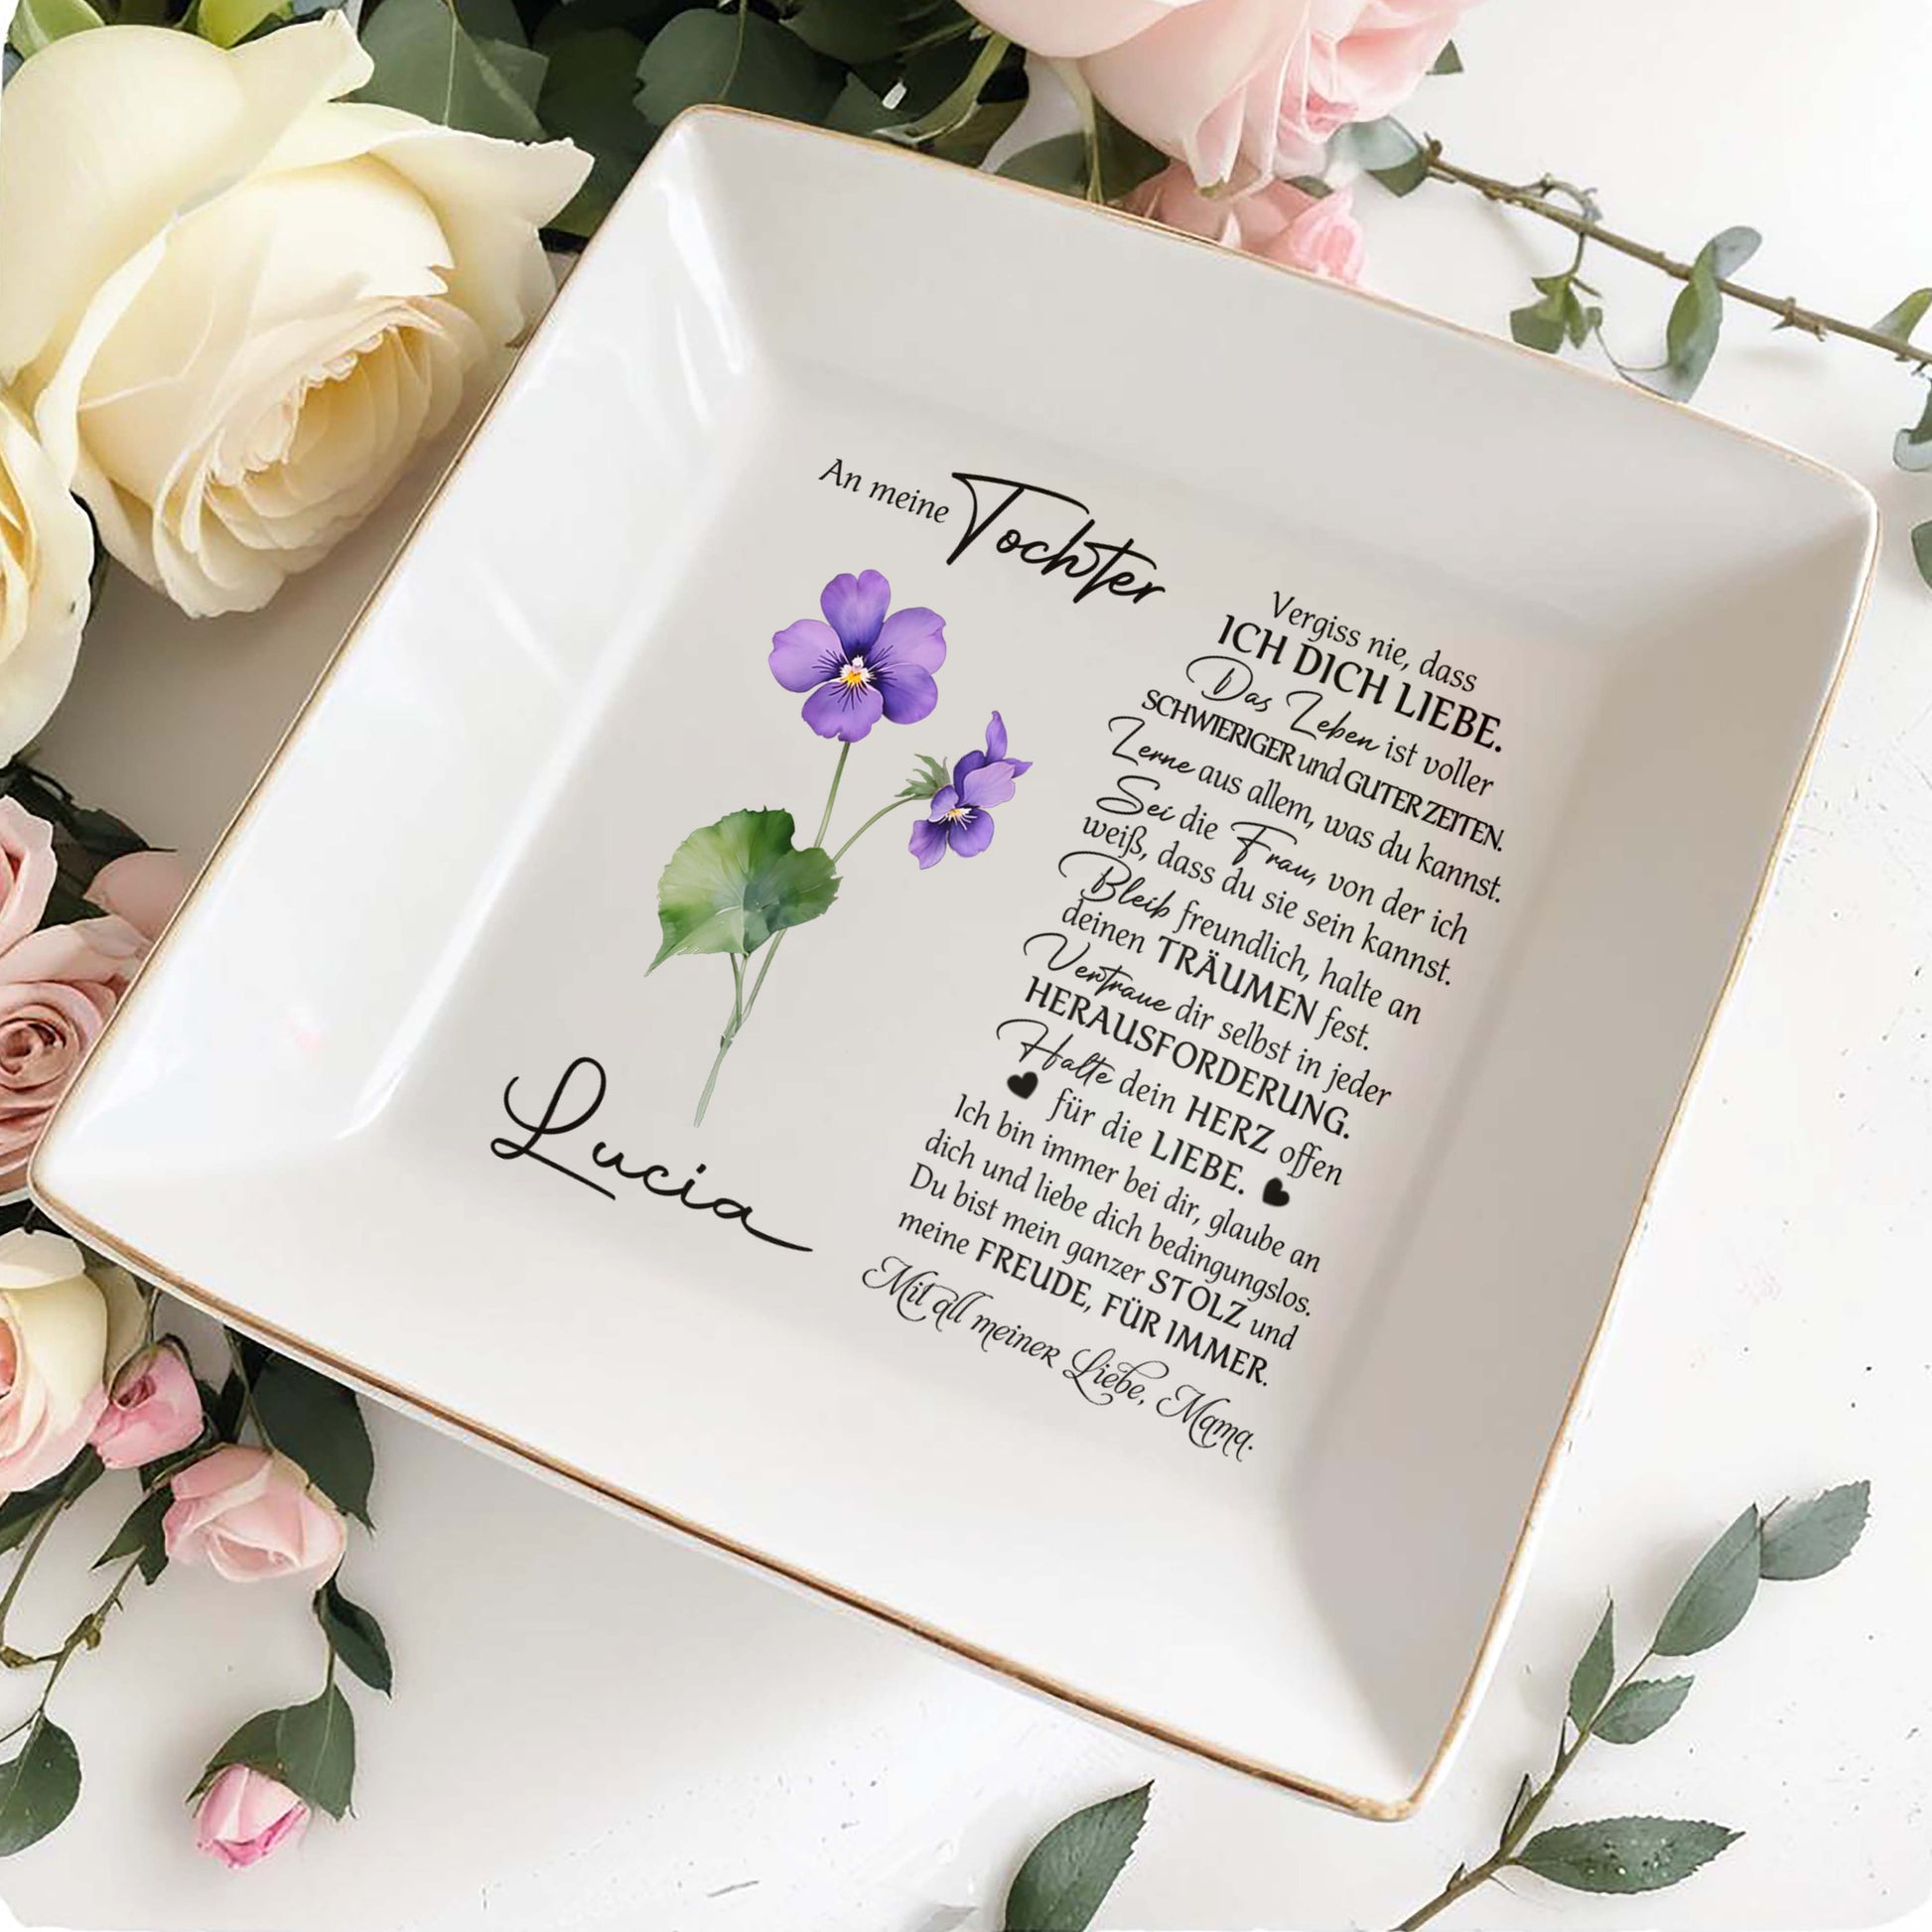 An meine Tochter
Vergiss nie, dass
ICH DICH LIEBE.
Das Leben ist voller
SCHWIERIGER und GUTER ZEITEN.
Lerne aus allem, was du kannst.
Sei die Frau, von der ich
weiß, dass du sie sein kannst.
Bleib freundlich, halte an
deinen TRÄUMEN fest.
Vertraue dir selbst in jeder
HERAUSFORDERUNG.
Halte dein HERZ offen
für die LIEBE.
Ich bin immer bei dir, glaube an
dich und liebe dich bedingungslos.
Du bist mein ganzer STOLZ und
meine FREUDE, FÜR IMMER.
Mit all meiner Liebe, Mama.
Lucia